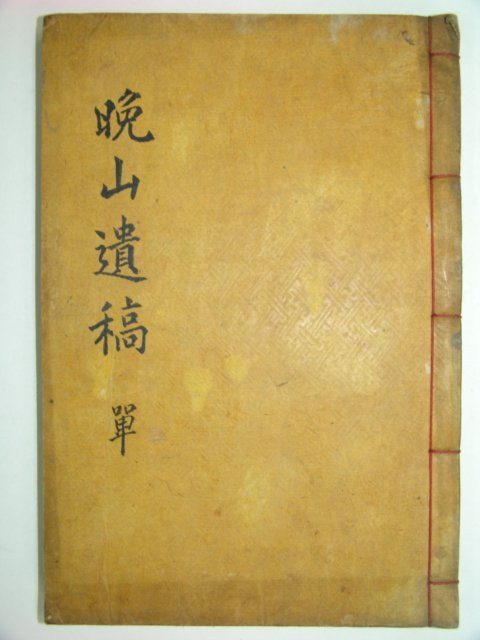 晩山遺稿 單